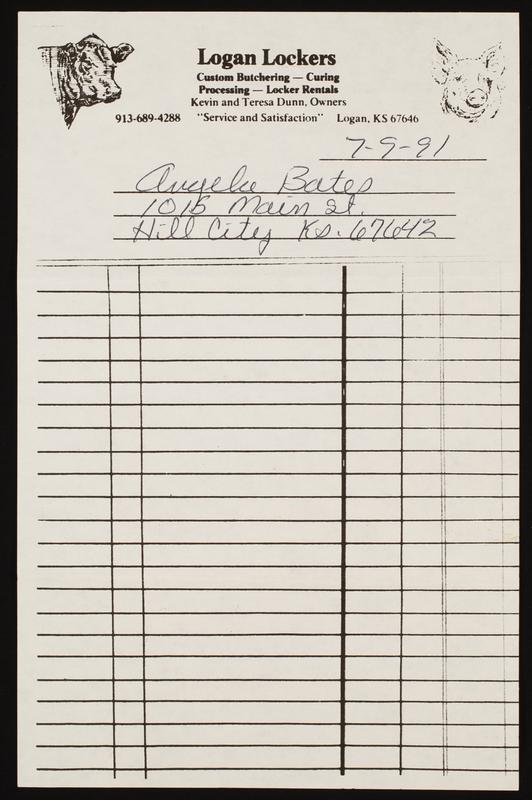 Logan Lockers
Custom Butchering — Curing
Processing — Locker Rentals
Kevin and Teresa Dunn, Owners
913-689-4288 "Service and Satisfaction" Logan, KS 67646
7-9-91
Angela Bates
1015 Main St.
Hill City Ks. 67642